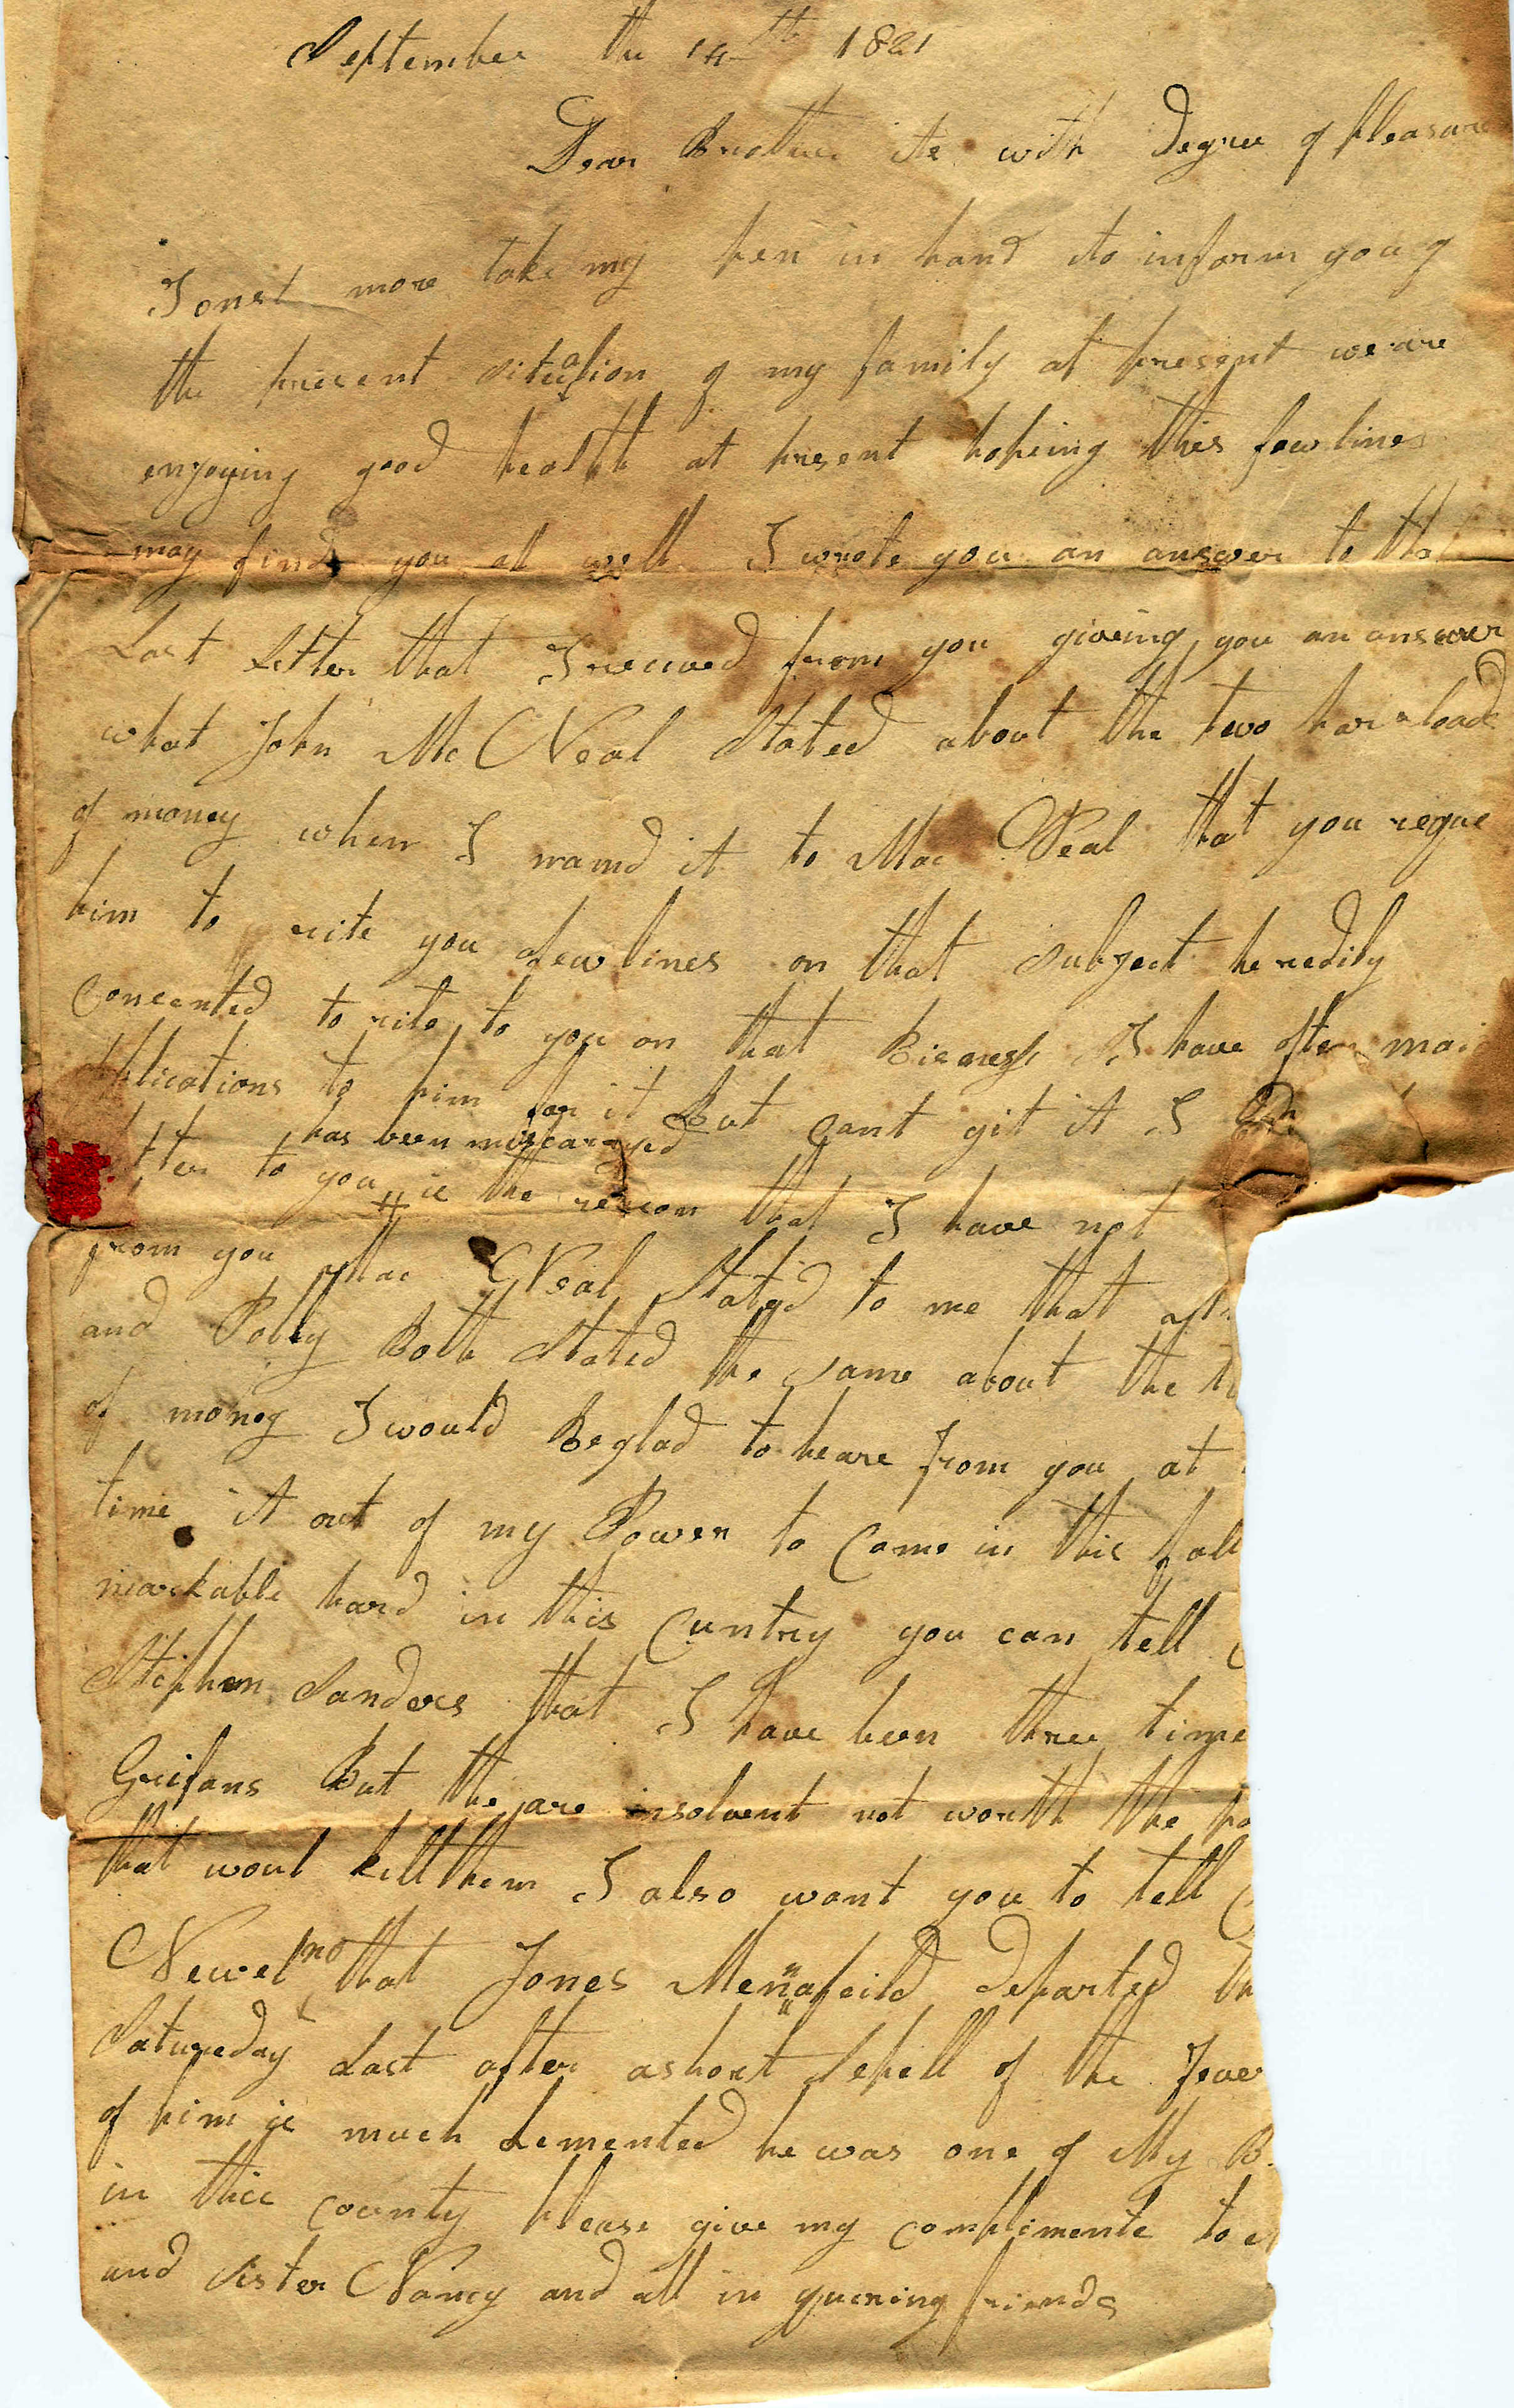 September the 14th 1821
Dear Brother its with Degree of pleasure
I onst more take my pen in hand to inform you of
the present situation of my family at present we are
enjoying good health at present hopeing this few lines
may find you all well I wrote you an answer to the
Last letter that I received from you giveing you an answer
what John Mc Neal Stated about the two hors loads
of money when I namd it to Mac Neal that you reque
him to rite you a few lines on that Subject he redily
Concented to rite to you on that Bisness I have often mai
applications to him for it But cant git it I
has been miscarryed
tter to you is the reason that I have not
from you Mac Neal Stated to me that
and Polly Both Stated the same about the
of money I would Be glad to heare from you at
time it out of my Power to Come in this fall
markable hard in this Cuntry you can tell
Stephen Sanders that I have been three time
Grifans But the are insolvent not worth the
that woul kill them I also want you to tell
Newel no that Jones Menafeild departed
Satureday Last after a short Spell of the Fever
of him is much Lemented he was one of My B
in this county please give my compliments to
and Sister Nancy and all in quering friends